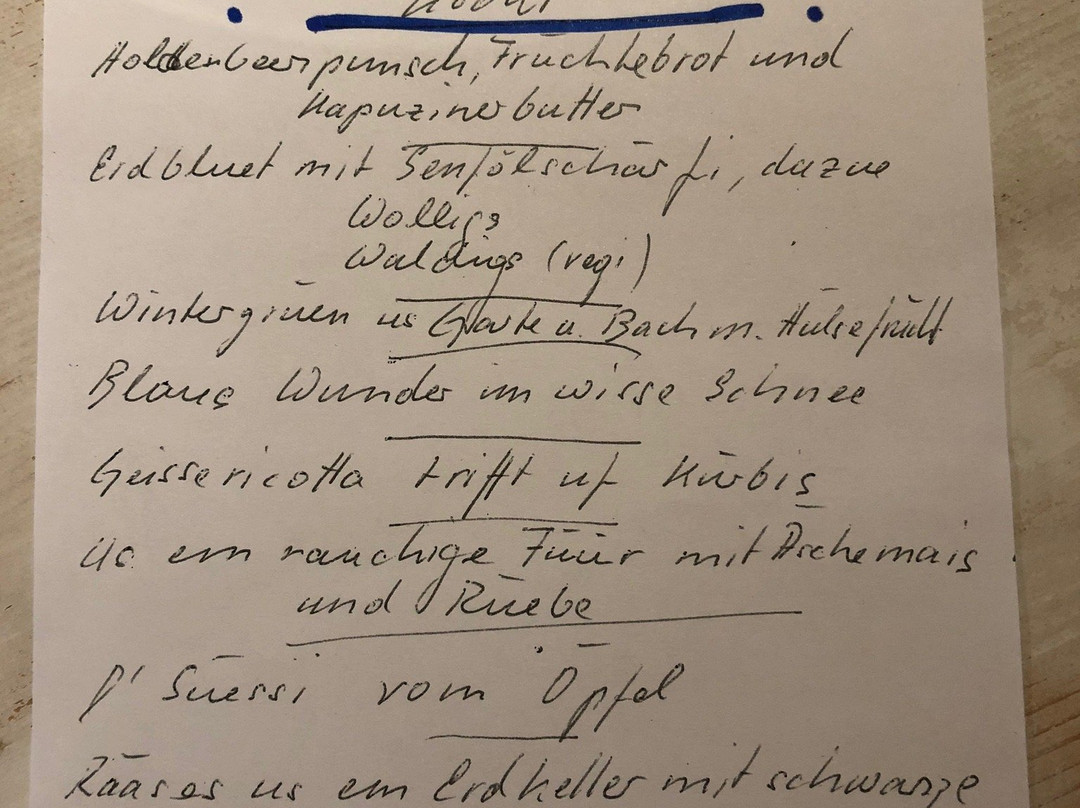 Holdenbeerpunsch, Früchtebrot und
Kapuzinerbutter
Erdbluet mit Senfölschärfi, dazue
Wolligs
Waldigs (regi)
Wintergrüen us Garte u. Bach m. Hülsefrücht
Blaus Wunder im wisse Schnee
Geissericotta trifft uf Kürbis
Us em rauchige Füür mit Äschemais
und Rüebe
D' Süessi vom Öpfel
Rääses us em Erdkeller mit schwarze